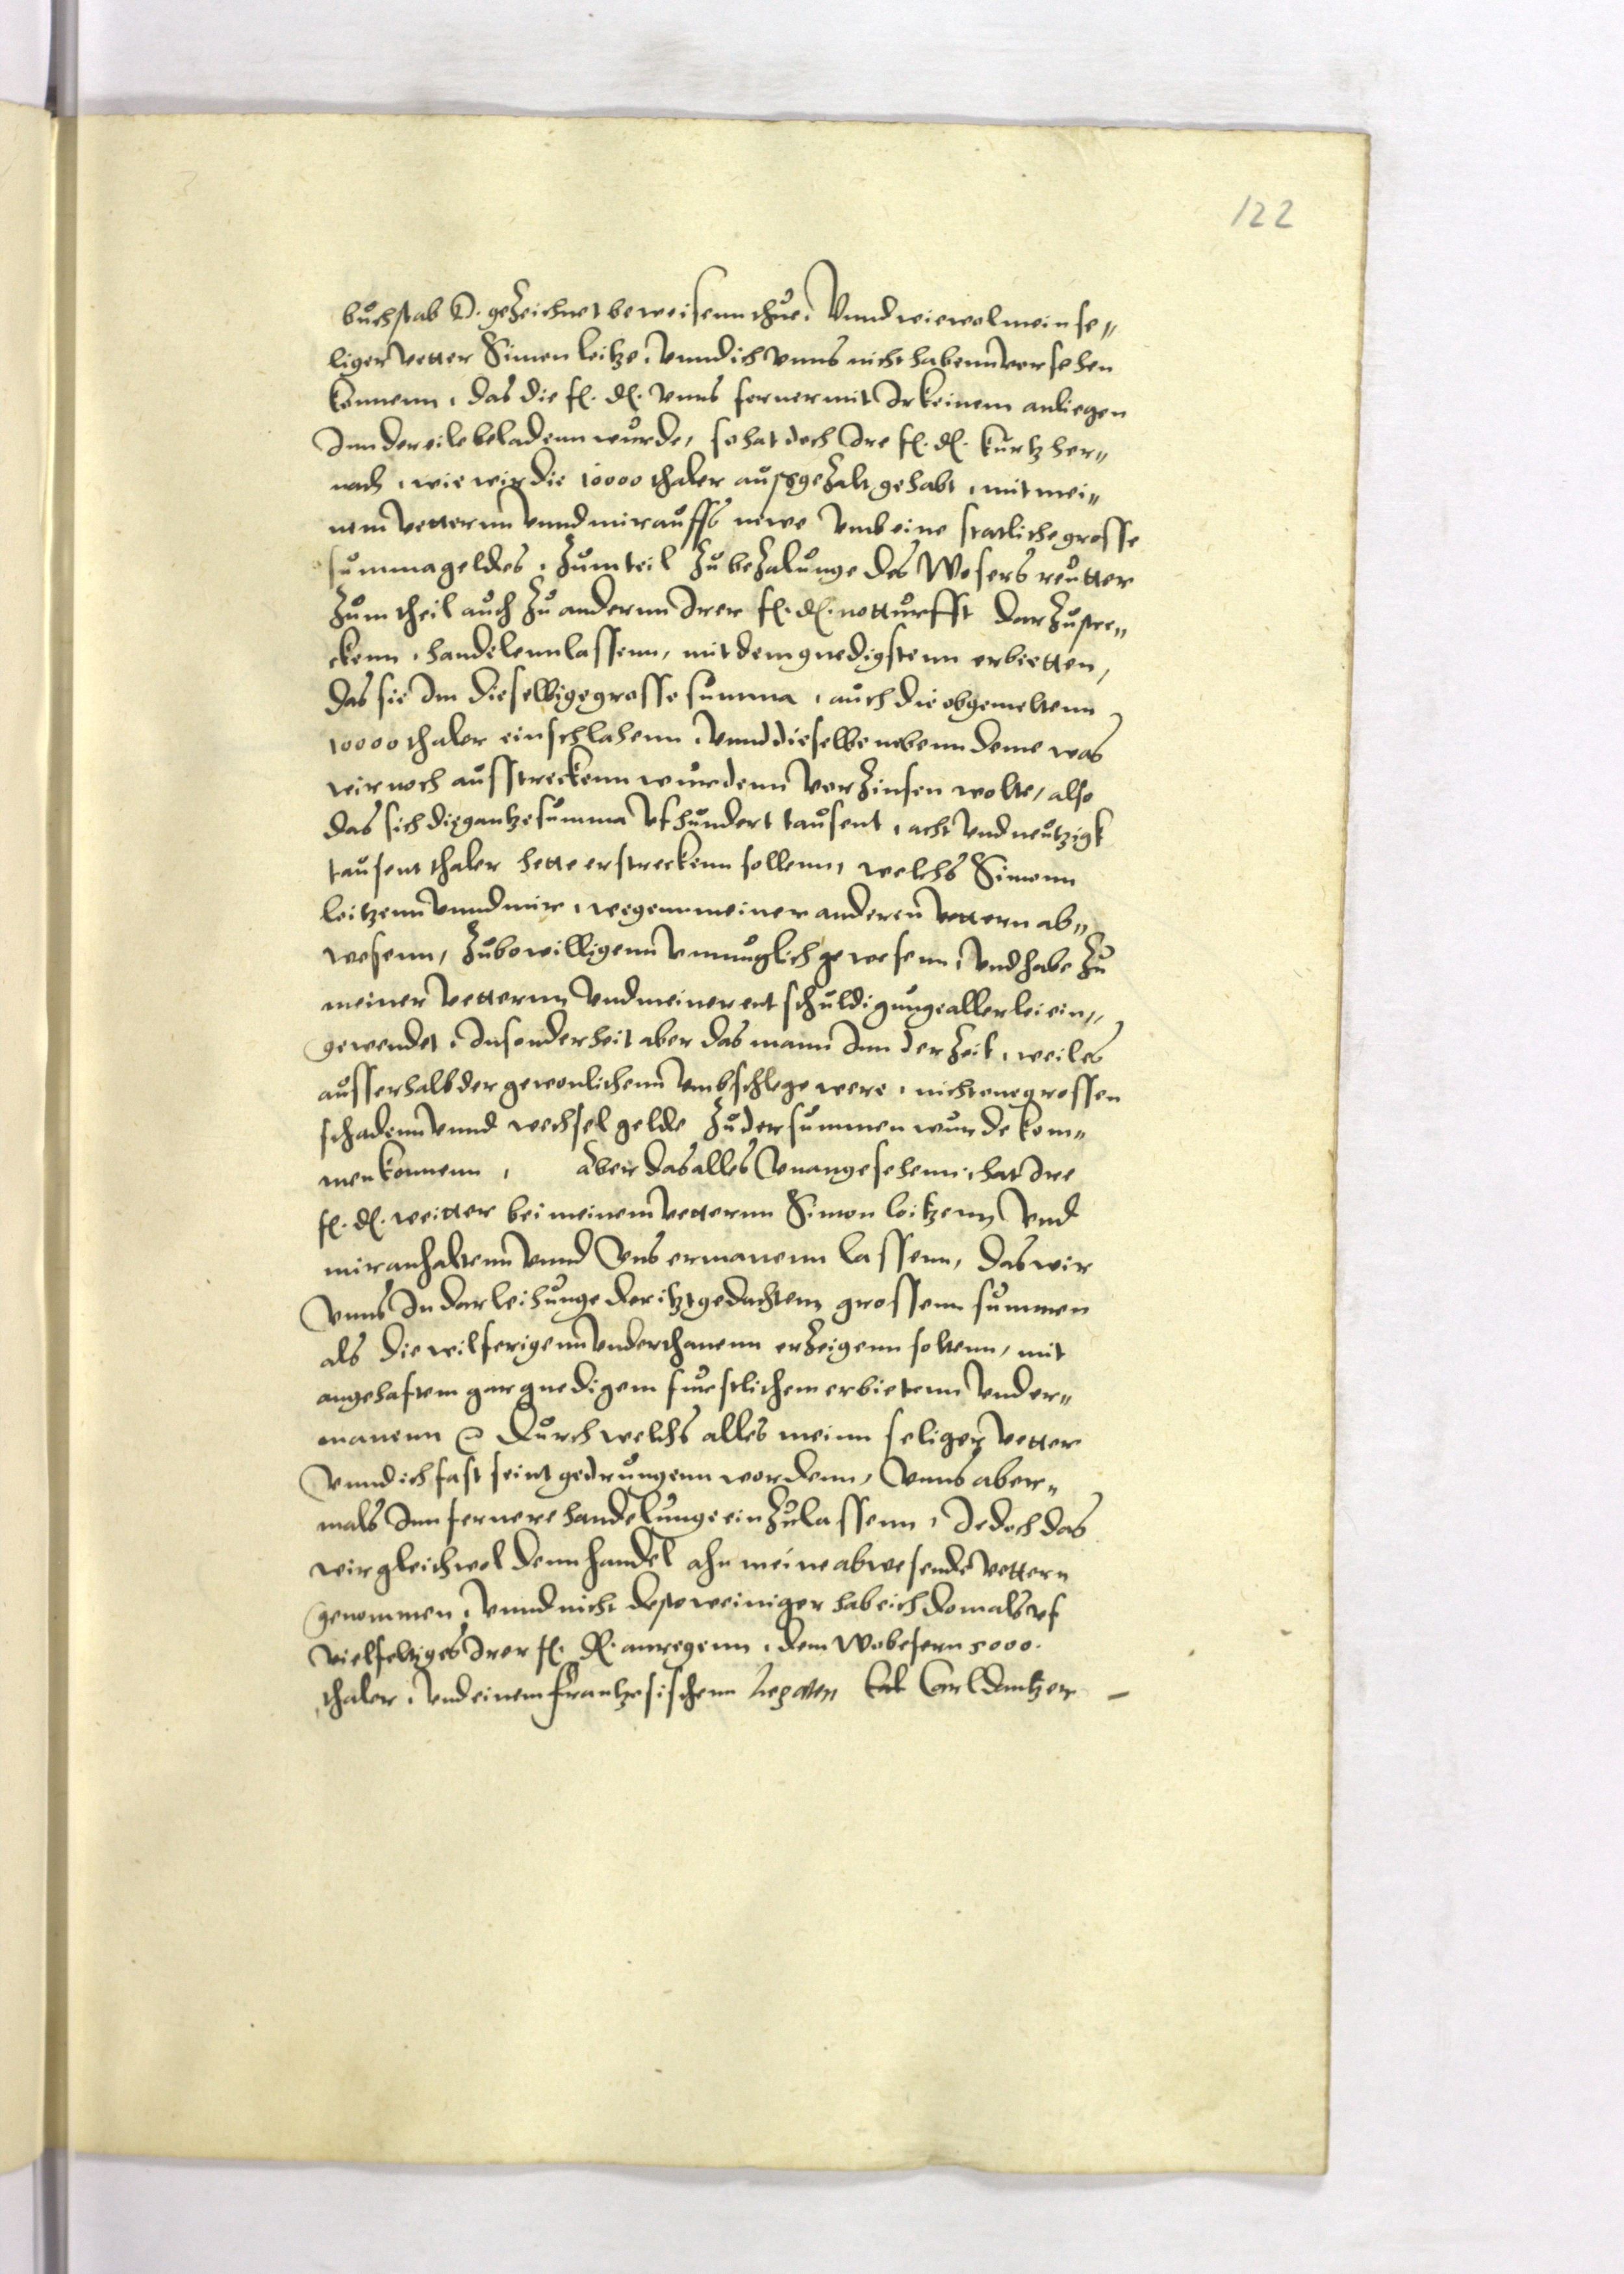 122
buchstab D. gezeichnet beweisenn thue. Vnnd wiewol mein se„
liger vetter Simon leitze, vnnd ich vnns nicht habenn versehen
konnenn, das die f. d. vnns ferner mit Irkeinem anliegen
Inn der eile beladenn wurde, so hat doch Ire f. d. kurtz her„
nach, wie wir die 10000 thaler außgezalt gehabt, mit mei„
nem vetternn vnnd mir auffs newe vmb eine statliche grosse
summa geldes, zum teil zu bezalunge des Wesers reutter
zum theil auch zu andernn Irer f. d. notturfft dar zustre„
ckenn, handelenn lassenn, mit dem gnedigstenn erbietten,
das sie Inn dieselbige grosse summa, auch die obgemeltenn
10000 thaler einschlahenn, vnnd dieselbe nebenn deme was
wir noch ausstreckenn wurdenn verzinsen wolte, also
das sich die gantze summa vf hundert tausent, acht vnd neutzigk
tausent thaler hette erstreckenn sollenn, welchs Simonn
leitzenn vnnd mir, wegenn meiner anderen vettern ab„
wesenn, zubewilligenn vnmuglich gewesenn, vnd habe zu
meiner vetternn vnd meiner entschuldigunge allerlei ein„
gewendet, Insonderheit aber das mann Inn der Zeit, weil es
ausserhalb der gewonlichenn vmbschlege were, nicht one grossen
schadenn vnnd wechselgelde zu der summen wurde kom„
men konnenn, aber das alles vnangesehenn, hat Ire
f. d. weitter bei meinem vetternn Simon leitzenn vnd
mir anhaltenn vnnd vns ermanenn lassenn, das wir
vnns In darleihunge der itztgedachtenn grossenn summen
als die wilferigenn vnderthanenn erzeigenn soltenn, mit
angehaftem gar gnedigem furstlichem erbietenn vnd er„
manenn Durch welchs alles meinn seliger vetter
vnnd ich fast seint gedrungenn wordenn, vnns aber„
mals Inn fernere handelunge einzulassenn, Jedoch das
wir gleichwol denn handel ahn meine abwesende vettern
genommen, vnnd nicht desto weiniger hab eich domals vf
vielfeltiges Irer f. d. anregenn, dem Wobesern 5000.
thaler, vnd einem frantzesischenn Legaten Carl Dantzer